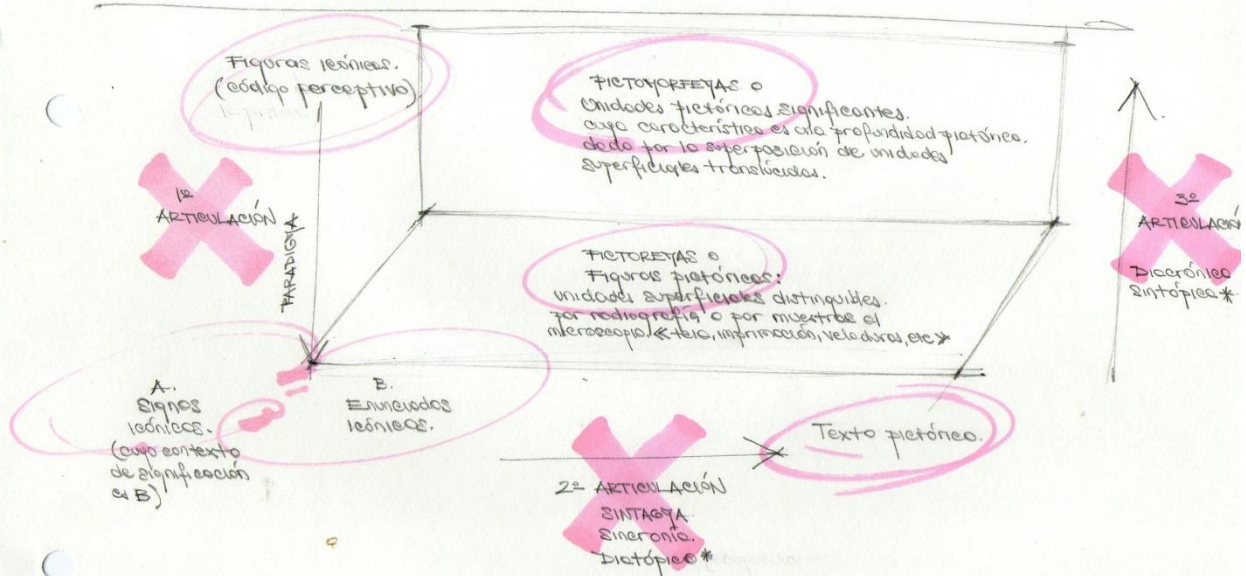 Figuras icónicas.
(código perceptivo)
PICTOMORFEMAS o
Unidades pictóricas significantes.
cuya característica es una profundidad pictórica.
dada por la superposición de unidades
superficiales translúcidas.
1ª
ARTICULACIÓN
PARADIGMA
3ª
ARTICULACIÓN
Diacrónica
Sintópica *
PICTOREMAS o
Figuras pictóricas:
unidades superficiales distinguibles.
por radiografía o por muestras al
microscopio. «tela, imprimación, veladuras, etc»
A.
Signos
icónicos.
(cuyo contexto
de significación
es B)
B.
Enunciados
icónicos.
Texto pictórico.
2ª ARTICULACIÓN
SINTAGMA
Sincronía.
Diatópica *